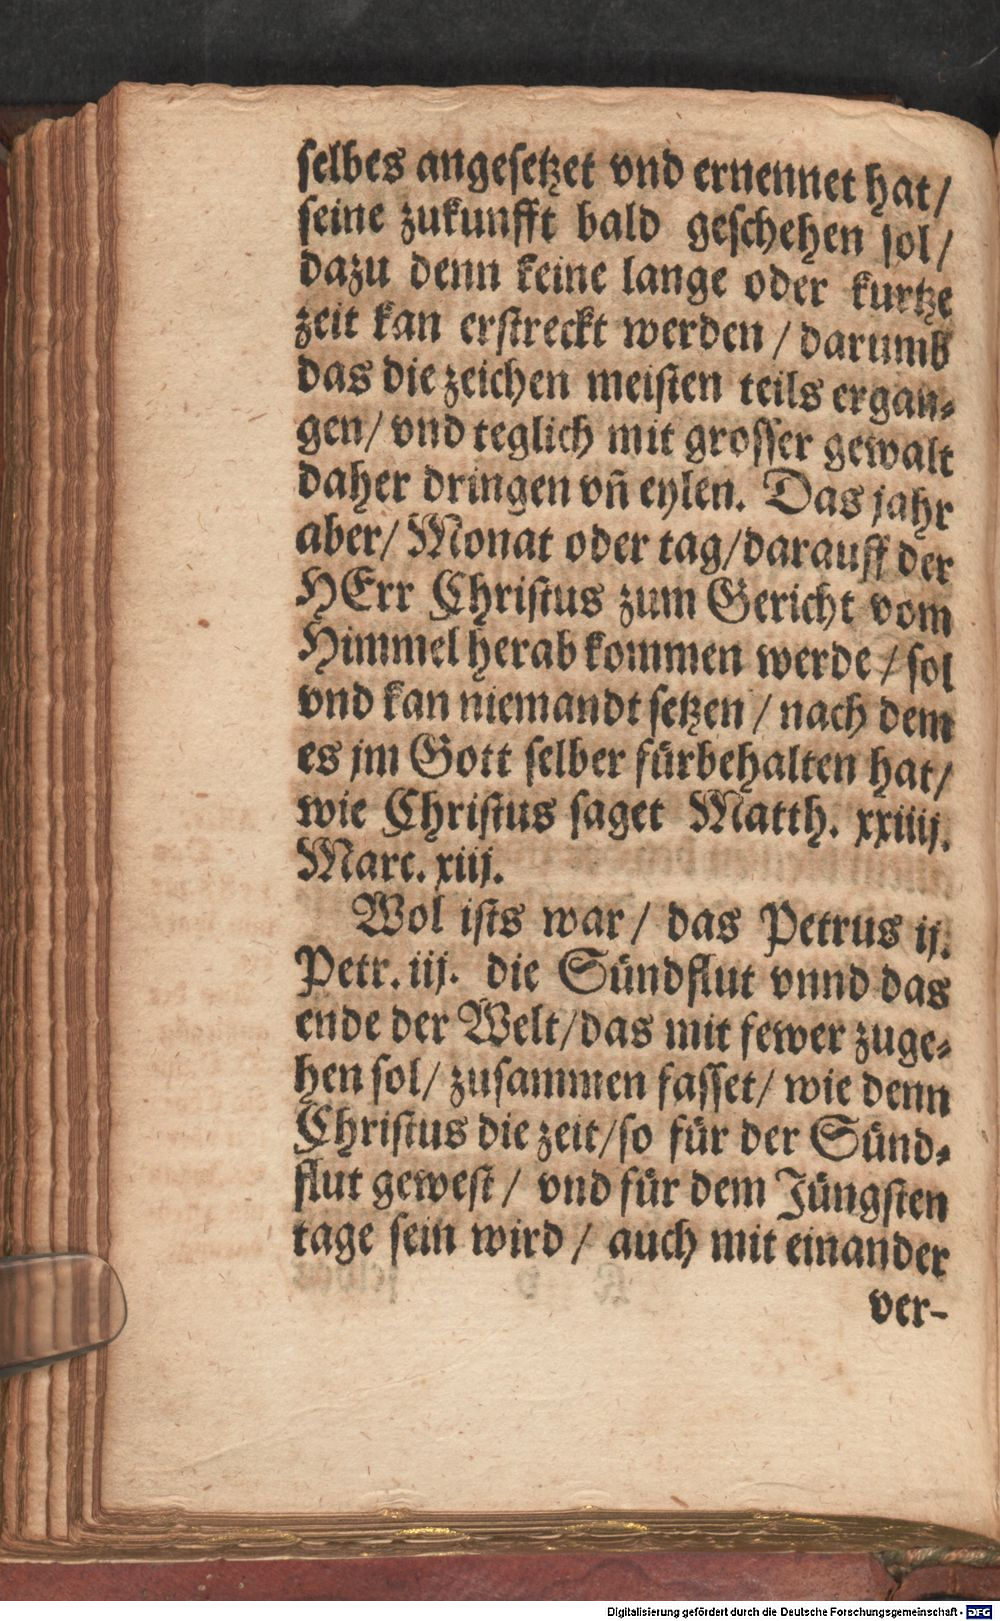 selbes angesetzet vnd ernennet hat/
seine zukunfft bald geschehen sol/
dazu denn keine lange oder kurtze
zeit kan erstreckt werden / darumb
das die zeichen meisten teils ergan-
gen/ vnd teglich mit grosser gewalt
daher dringen vñ eylen. Das jahr
aber/ Monat oder tag/darauff der
HErr Christus zum Gericht vom
Himmel herab kommen werde / sol
vnd kan niemandt setzen / nach dem
es jm Gott selber fürbehalten hat/
wie Christus saget Matth. xxiiij.
Marc. xiij.
Wol ists war / das Petrus ij.
Petr. iij. die Sündflut vnnd das
ende der Welt/das mit fewer zuge-
hen sol/ zusammen fasset/ wie denn
Christus die zeit/so für der Sünd-
flut gewest / vnd für dem Jüngsten
tage sein wird / auch mit einander
ver-
Digitalisierung gefördert durch die Deutsche Forschungsgemeinschaft - DFG